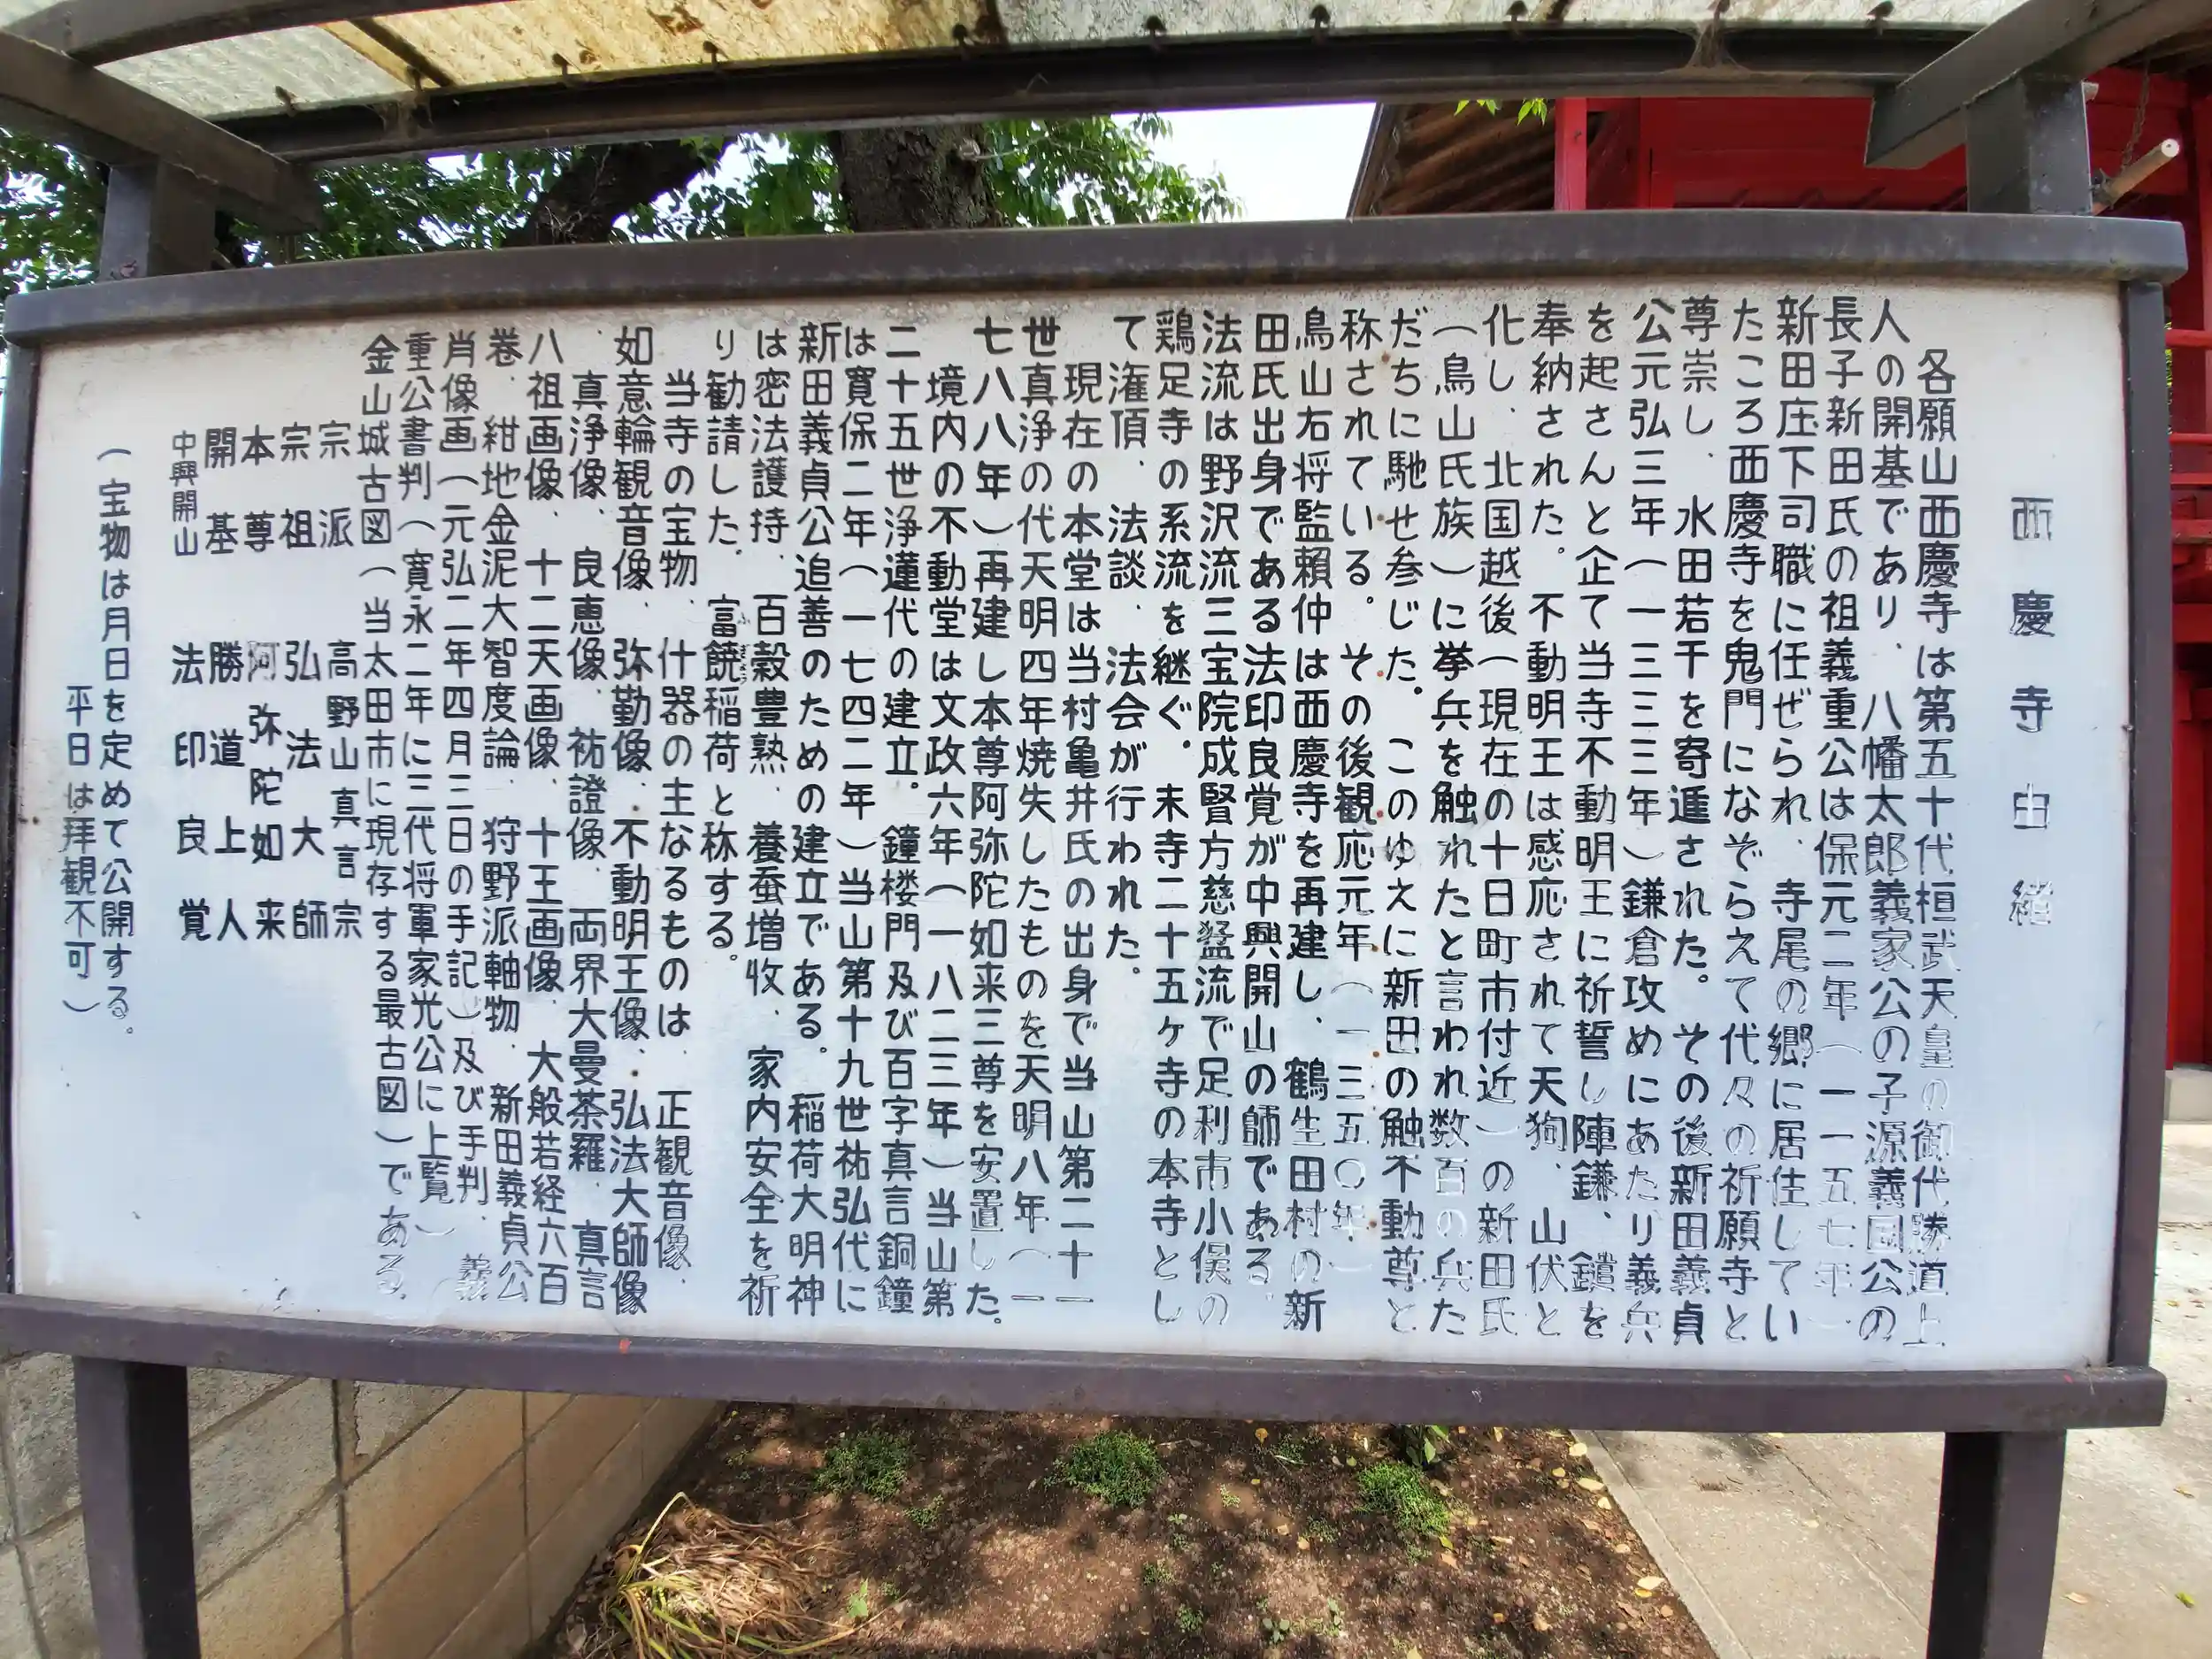 西慶寺由緒
各願山西慶寺は第五十代桓武天皇の御代勝道上
人の開基であり、八幡太郎義家公の子源義国公の
長子新田氏の祖義重公は保元二年（一一五七年）
新田庄下司職に任ぜられ、寺尾の郷に居住してい
たころ西慶寺を鬼門になぞらえて代々の祈願寺と
尊崇し、水田若干を寄進された。その後新田義貞
公元弘三年（一三三三年）鎌倉攻めにあたり義兵
を起さんと企て当寺不動明王に祈誓し陣鎌、鑓を
奉納された。不動明王は感応されて天狗、山伏と
化し、北国越後（現在の十日町市付近）の新田氏
（鳥山氏族）に挙兵を触れたと言われ数百の兵た
だちに馳せ参じた。このゆえに新田の触不動尊と
称されている。その後観応元年（一三五〇年）
鳥山右将監頼仲は西慶寺を再建し、鶴生田村の新
田氏出身である法印良覚が中興開山の師である。
法流は野沢流三宝院成賢方慈猛流で足利市小俣の
鶏足寺の系流を継ぐ。末寺二十五ヶ寺の本寺とし
て潅頂、法談、法会が行われた。
現在の本堂は当村亀井氏の出身で当山第二十一
世真浄の代天明四年焼失したものを天明八年（一
七八八年）再建し本尊阿弥陀如来三尊を安置した。
境内の不動堂は文政六年（一八二三年）当山第
二十五世浄蓮代の建立。鐘楼門及び百字真言銅鐘
は寛保二年（一七四二年）当山第十九世祐弘代に
新田義貞公追善のための建立である。稲荷大明神
は密法護持、百穀豊熟、養蚕増収、家内安全を祈
り勧請した。富饒稲荷と称する。
当寺の宝物、什器の主なるものは、正観音像、
如意輪観音像、弥勤像、不動明王像、弘法大師像
、真浄像、良恵像、祐證像、両界大曼荼羅、真言
八祖画像、十二天画像、十王画像、大般若経六百
巻、紺地金泥大智度論、狩野派軸物、新田義貞公
肖像画（元弘二年四月三日の手記）及び手判、義
重公書判（寛永二年に三代将軍家光公に上覧）
金山城古図（当太田市に現存する最古図）である。
宗派　高野山真言宗
宗祖　弘法大師
本尊　阿弥陀如来
開基　勝道上人
中興開山　法印良覚
（宝物は月日を定めて公開する。
平日は拝観不可）